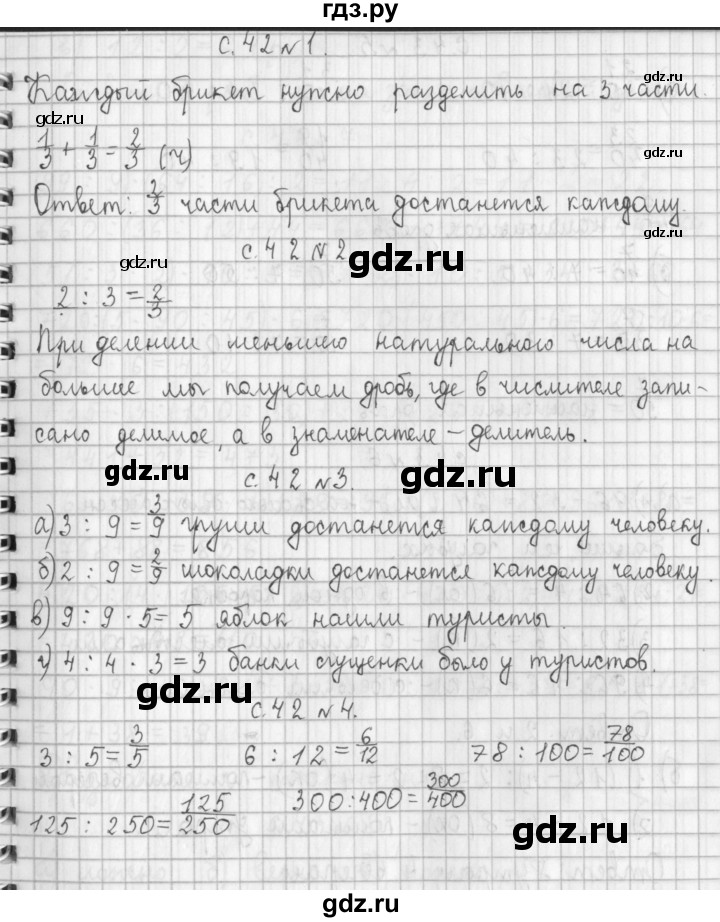 гдз.ру
с.42 №1.
gdz.ru
Каждый брикет нужно разделить на 3 части.
gdz.ru
1/3 + 1/3 = 2/3 (ч)
gdz.ru
Ответ: 2/3 части брикета достанется каждому.
gdz.ru
с.42 №2
gdz.ru
gdz.ru
2 : 3 = 2/3
При делении меньшего натурального числа на
большие мы получаем дробь, где в числителе запи-
сано делимое, а в знаменателе – делитель.
gdz.ru
с.42 №3.
gdz.ru
а) 3 : 9 = 3/9 груши достанется каждому человеку.
б) 2 : 9 = 2/9 шоколадки достанется каждому человеку.
в) 9 : 9 · 5 = 5 яблок нашли туристы.
г) 4 : 4 · 3 = 3 банки сгущенки было у туристов.
gdz.ru
с.42 №4.
3 : 5 = 3/5 6 : 12 = 6/12 78 : 100 = 78/100
125 : 250 = 125/250 300 : 400 = 300/400
gdz.ru
gdz.ru